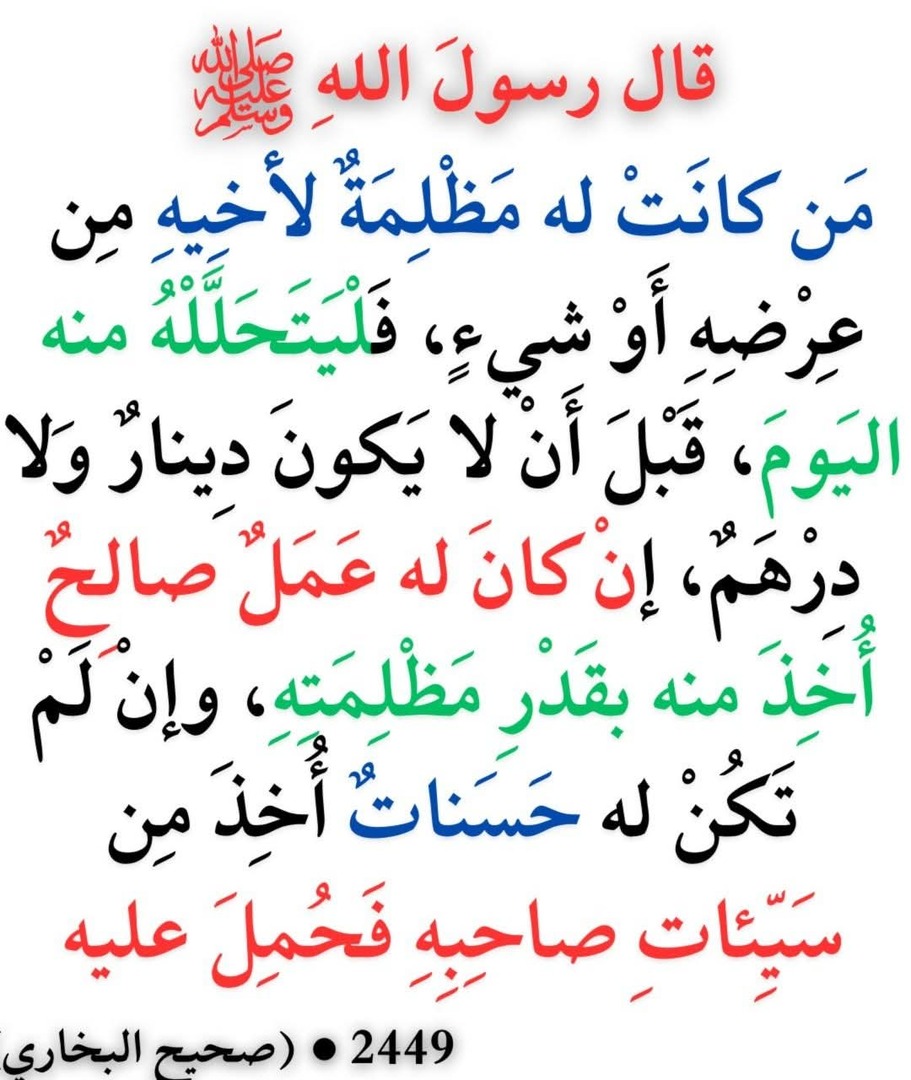 قال رسولَ اللهِ ﷺ
مَن كانَتْ له مَظْلِمَةٌ لأخِيهِ مِن
عِرْضِهِ أَوْ شيءٍ، فَلْيَتَحَلَّلْهُ منه
اليَومَ، قَبْلَ أَنْ لا يَكونَ دِينارٌ وَلا
دِرْهَمٌ، إنْ كانَ له عَمَلٌ صالحٌ
أُخِذَ منه بقَدْرِ مَظْلِمَتِهِ، وإنْ لَمْ
تَكُنْ له حَسَناتٌ أُخِذَ مِن
سَيِّئاتِ صاحِبِهِ فَحُمِلَ عليه
2449 ● (صحيح البخاري)